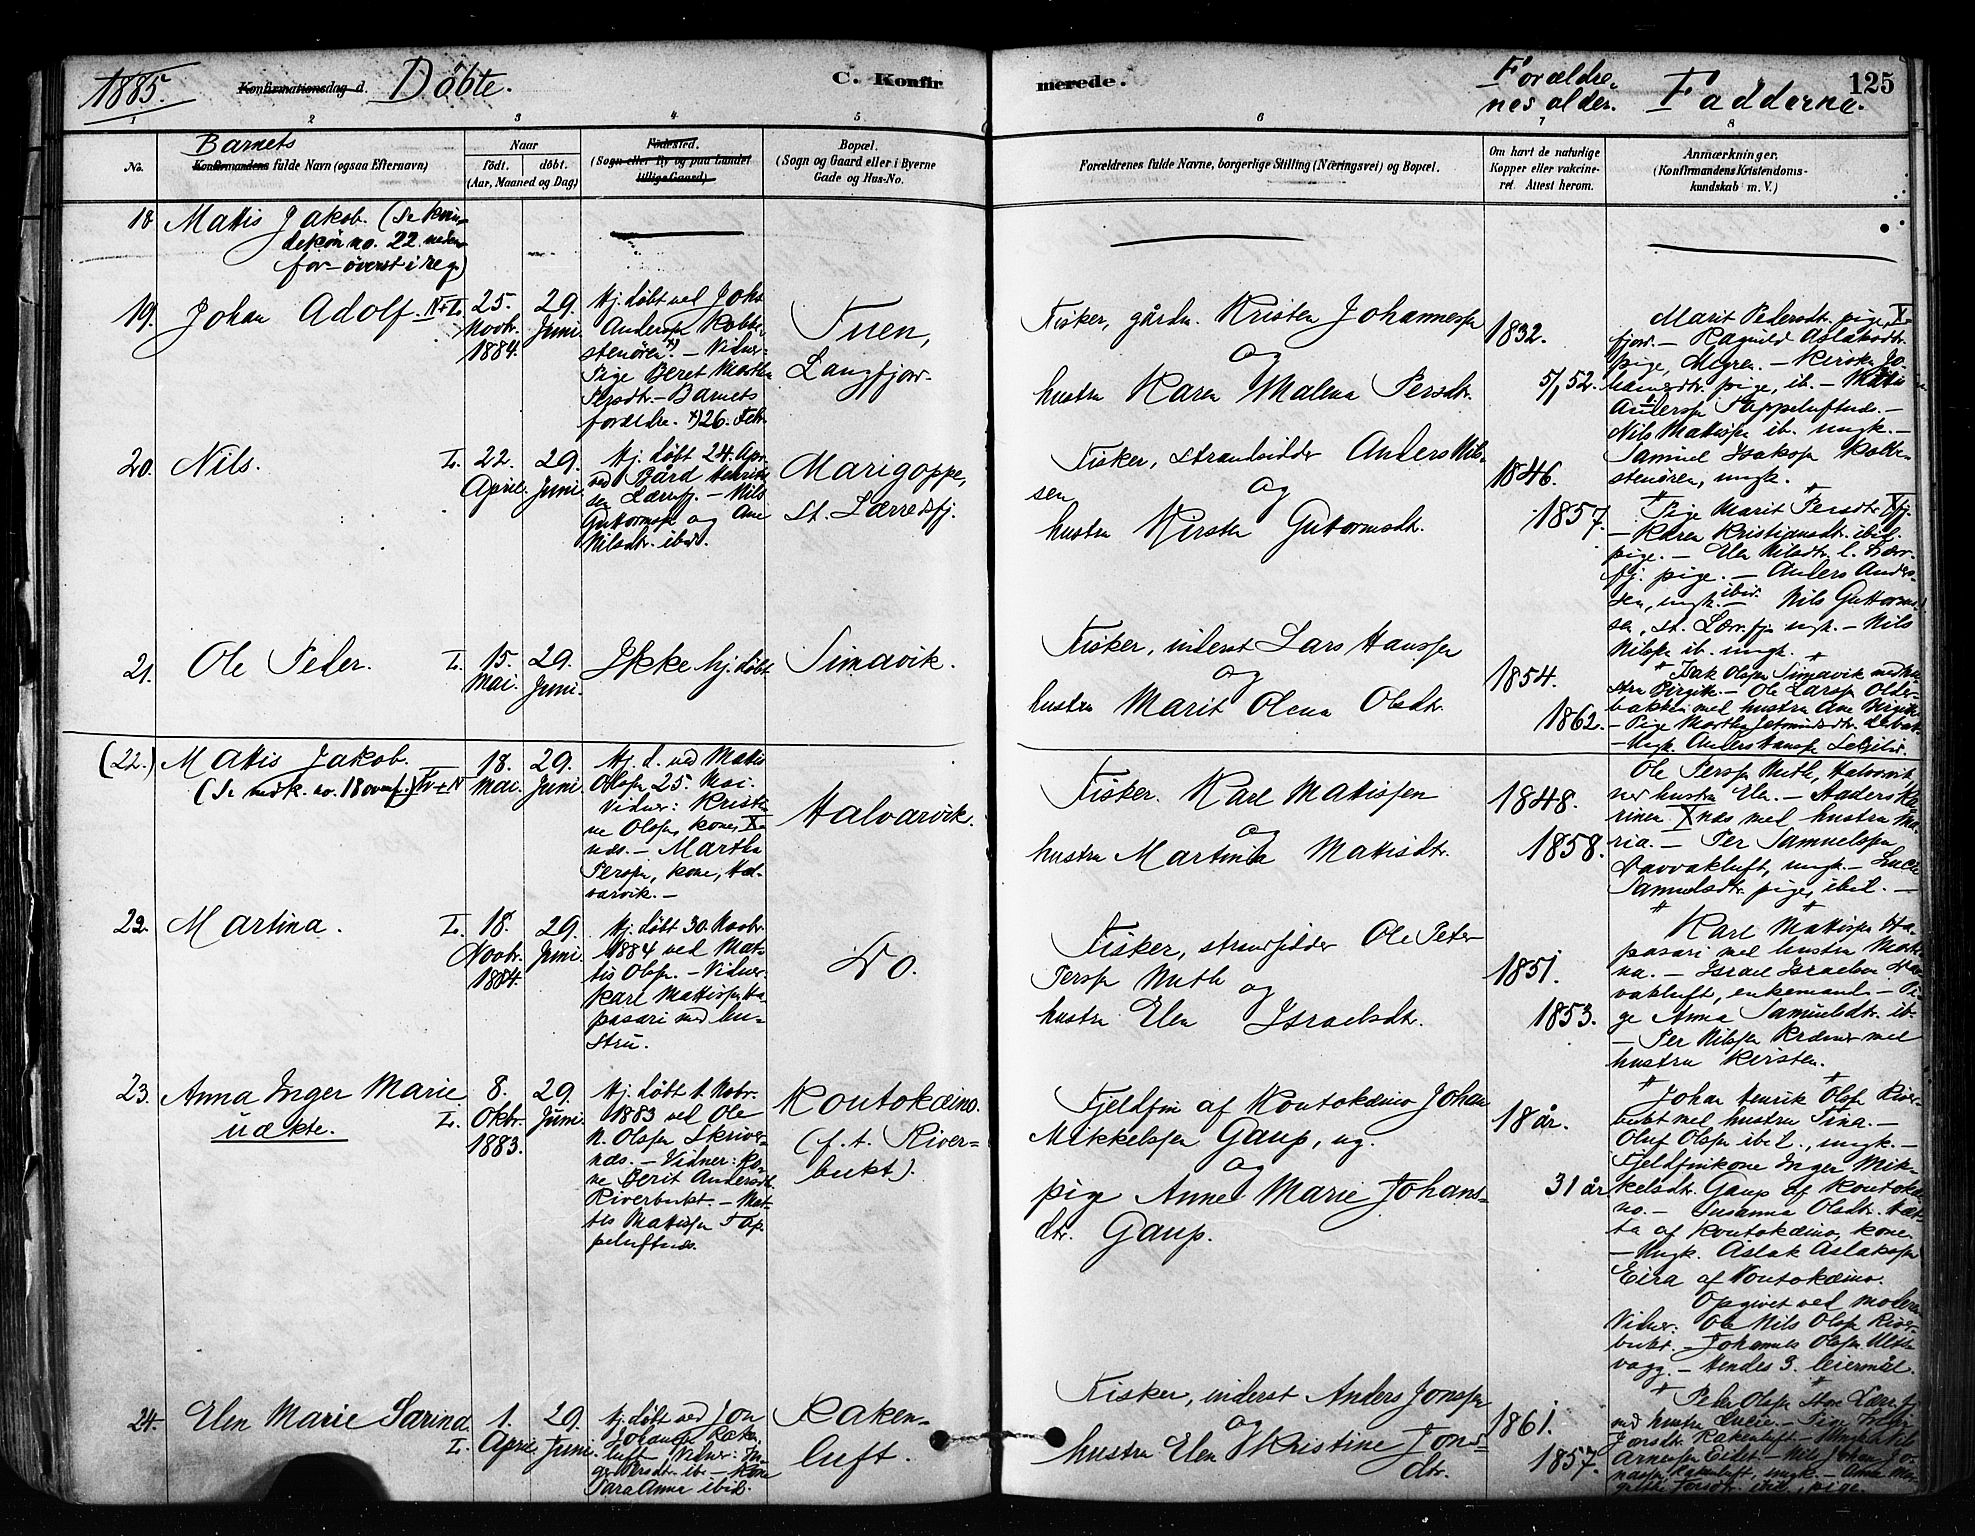 1885.
Konfirmationsdag d. Döbte.
C. Konfirmerede.
Forældrenes alder.
Fadderne.
125
1 2 3 4 5 6 7 8
No.
Barnets
Konfirmandens fulde Navn (ogsaa Efternavn)
Naar
født. døbt.
(Aar, Maaned og Dag)
Födested.
(Sogn eller By og paa Landet
tillige Gaard)
Bopæl.
(Sogn og Gaard eller i Byerne
Gade og Hus-No.
Forældrenes fulde Navne, borgerlige Stilling (Næringsvei) og Bopæl.
Om havt de naturlige
Kopper eller vakcine-
ret. Attest herom.
Anmærkninger.
(Konfirmandens Kristendoms-
kundskab m. V.)
18 Mattis Jakob. (Se
no. 22 neden-
for - överst i reg.)
19. Johan Adolf.
25.
Novbr.
1884.
29.
Juni.
Hj. döbt ved Johs
Anders
Vidner
Pige Beret Martha
Persdtr. - Barnets
forældre. 26. Febr.
Tuen,
Langfjor.
Fisker, gårdm. Kristen Johannessen
og
hustru Karen Malena Persdtr.
1832.
5/52.
Marit Pedersdtr. pige,
fjor. - Ragnild Aslaksdtr.
pige,
pige, ib. - Mattis
Anderssen
Nils Mattissen ib. ungk. -
Samuel Isaksen
ungk.
20. Nils. L.
22.
April.
29.
Juni
Hj. döbt 24. Apr.
ved Bård Henrik-
sen Lærrfj. - Nils
Guttormsen og Ane
Nilsdtr. ibid.
Marigoppe,
St. Lærredsfj.
Fisker, strandsidder Anders Nil-
sen
og
hustru Kirsten Guttormsdtr.
1846.
1857.
Pige Marit Persdtr.
- Karen Kristiansdtr. ibid.
pige. - Elen Nilsdtr. l. Lærr-
fj. pige. - Anders Anders-
sen, ungk. ibid. - Nils Guttorm-
sen, St. Lærrfj. ungk. - Nils
Nilsen ib. ungk.
21. Ole Peder. L.
15.
Mai.
29.
Juni.
Ikke hj. döbt
Simavik.
Fisker, inderst Lars Hanssen
og
hustru Marit Olena Olsdtr.
1854.
1862.
Isak Olsen Simavik med hu-
stru Birgit. - Ole Larsen Older-
bakken med hustru Ane
- Pige Martha
- Ungk. Anders Hanssen
(22.) Mattis Jakob.
18.
Mai.
29.
Juni.
Hj. d. ved Mattis
Olsen 25. Mai.
Vidner: Kristi-
ne Olsen, kone,
næs. - Martha
Persen, kone, Hal-
varvik. -
Halvarvik.
Fisker. Karl Mattissen
og
hustru Martina Mattisdtr.
1848.
1858.
Ole Persen Muth, Halvarvik,
med hustru Elen. - Anders
næs med hustru Ma-
ria. - Per Samuelsen
Davvakluft, ungk. -
Samuelsdtr. pige, ibid. -
22. Martina. L.
18.
Novbr.
1884.
29.
Juni.
Hj. döbt 30. Novbr.
1884 ved Mat-
tis Olsen. - Vidner
Karl Mattissen Ha-
pasari med hu-
stru.
Do.
Fisker, strandsidder Ole Peter
Persen Muth og
hustru Elen Israelsdtr.
1851.
1853.
Karl Mattissen Ha-
pasari med hustru Marti-
na. - Israel Israelsen Dav-
vakluft, enkemand. - Pi-
ge Anna Samuelsdtr. ib.
- Per Nilssen med
hustru Kirsten.
23. Anna Inger Marie
uækte. L.
8.
Oktbr.
1883.
29.
Juni.
Hj. döbt 1. Nobr.
1883 ved Ole
N. Olsen Skriver-
næs. - Vidner: Ko-
ne Berit Andersdtr.
Riverbukt. - Mat-
tis Mattissen Tap-
peluftnæs.
Koutokæino.
(f. t. River-
bukt).
Fjeldfin af Koutokæino Johan
Mikkelsen Gaup, ug.
og
pige Anne Marie Johans-
dtr. Gaup.
18 år.
31 år
Johan Henrik Olsen River-
bukt med hustru Tina. -
Oluf Olsen ibid., ungk. -
Fjeldfinkone Inger Mik-
kelsdtr. Gaup af Koutokæi-
no. - Susanna Olsdtr.
af Koutokæino, kone.
- Ungk. Aslak Aslaksen
Eira af Koutokæino.
Opgivet ved moderen
Vidner: Ole Nils Olsen River-
bukt. - Johannes Olsen
vagg. - Hendes 3. leiermål.
24. Elen Marie Sarina L.
1.
April.
29.
Juni.
Hj. döbt ved Jon
Johansen Raken-
luft. - Vidner: In-
ger Persdtr. ib. - Kone
Sara Anna ibid.
Raken-
luft.
Fisker, inderst Anders Jonsen
og
hustru Elen Kristine Jons-
dtr.
1861.
1857.
Peder Olsen Store Lærrfj.
med hustru
Rakenluft - Ungk.
Arnesen Eidet - Nils Johan Jo-
nassen Rakenluft, ungk. -
ibid, pige.